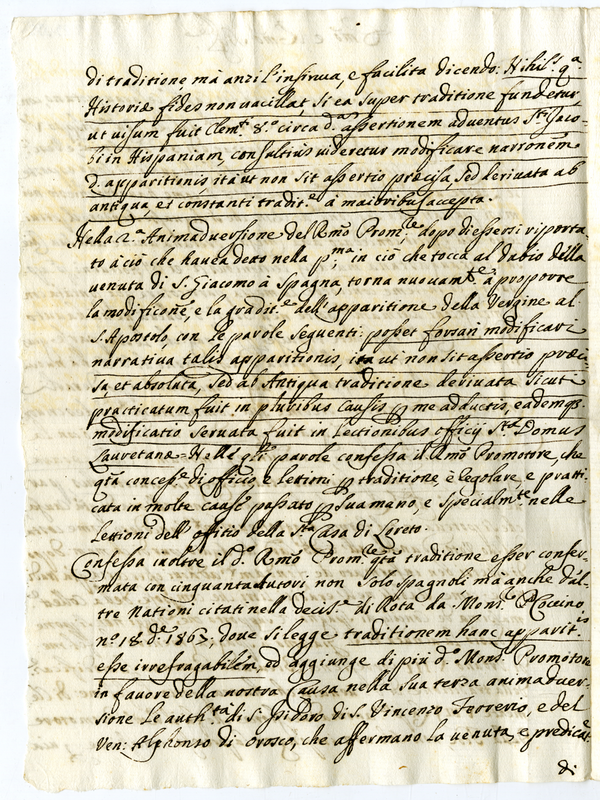 di traditione mà anzi l'insinua, e facilita dicendo: Nihil. qa.
Historiæ fides non vacillat, si ea super traditione fundetur,
ut visum fuit Clemt. 8.o circa d.a assertionem adventus Sti. Jaco-
bi in Hispaniam, consultius videretur modificare narronem
d. apparitionis ità ut non sit assertio precisa, sed derivata ab
antiqua, et constanti tradit.e à maioribus accepta.
Nella 2.a Animadversione del Rmo Prom.le dopo di essersi riporta-
to à ciò che haveva detto nella p.ma in ciò che tocca al dubio della
venuta di S. Giacomo à Spagna, torna nuovam.te à proporre
la modificone, e la gradit.e dell'apparitione della Vergine al
S. Apostolo, con le parole seguenti: posset forsan modificari
narrativa talis apparitionis, ita ut non sit assertio præci-
sa, et absoluta, sed ab Antiqua traditione derivata sicuti
practicatum fuit in pluribus causis p me adductis, eademq;
modificatio servata fuit in Lectionibus officij Stæ Domus
Lauretanæ. Nelle qli parole confessa il Rmo Promotore, che
qta concess.e di officio, e letioni p traditione, è legolare, e pratti-
cata in molte cause passato p sua mano, e specialm.te nelle
Lettioni dell'offitio della Sta Casa di Loreto.
Confessa inoltre il d.o Rmo Prom.le qta traditione esser confer-
mata con cinquanta Autori non solo spagnoli mà anche d'al-
tre Nationi citati nella decis.e di Rota da Mons.r Peccino
n.o 18. d.e 1863, dove si legge traditionem hanc apparit.is
esse irrefragabilem, ed aggiunge di più d.o Mons. Promotore
in favore della nostra Causa nella sua terza animadver-
sione le auth.tà di S. Isidoro di S. Vincenzo Ferrerio, e del
Ven: Alphonso di Orosco, che affermano la venuta, e predicat.
di